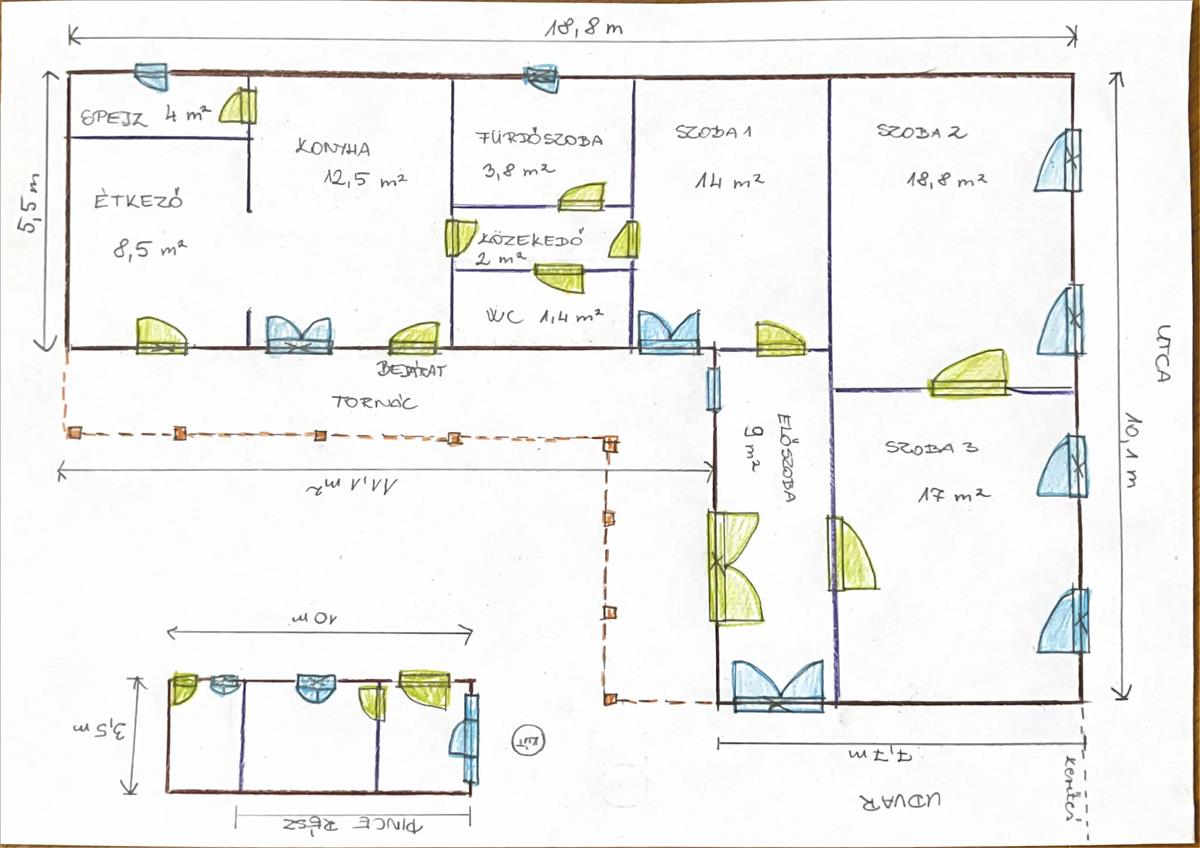 18,8 m
SPEJZ 4 m²
KONYHA
12,5 m²
FÜRDŐSZOBA
3,8 m²
SZOBA 1
14 m²
SZOBA 2
18,8 m²
5,5 m
ÉTKEZŐ
8,5 m²
KÖZEKEDŐ
2 m²
WC 1,4 m²
BEJÁRAT
TORNÁC
UTCA
11,1 m²
ELŐSZOBA
9 m²
SZOBA 3
17 m²
10,1 m
10 m
3,5 m
KÚT
7,7 m
UDVAR
kerítés
PINCE RÉSZ